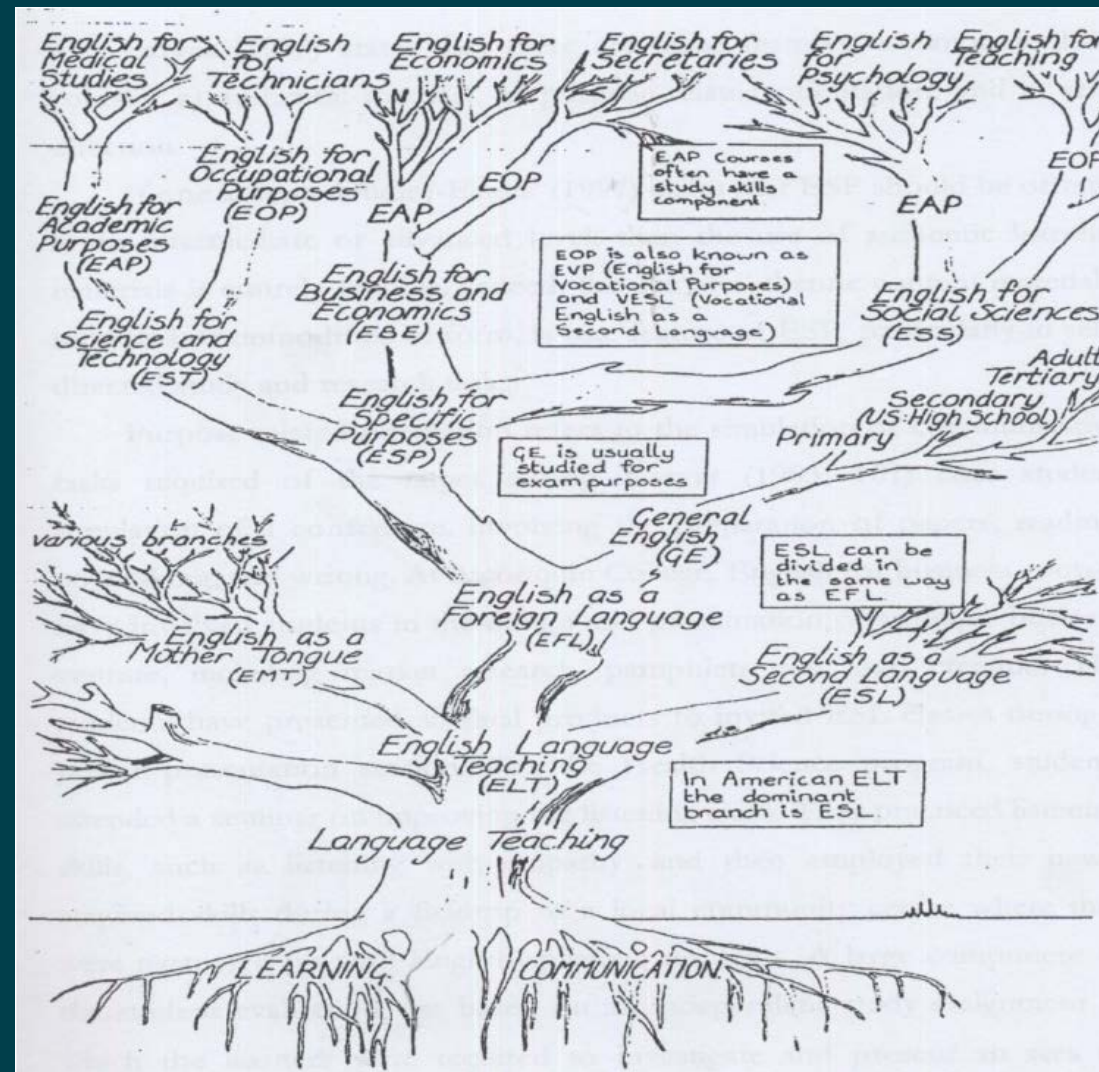 English for
Medical
Studies
English
for
Technicians
English for
Economics
English for
Secretaries
English
for
Psychology
English for
Teaching
English for
Occupational
Purposes
(EOP)
EOP
EAP Courses
often have a
study skills
component
EOP
English for
Academic
Purposes
(EAP)
EAP
EAP
EOP is also known as
EVP (English for
Vocational Purposes)
and VESL (Vocational
English as a
Second Language)
English for
Science and
Technology
(EST)
English for
Business and
Economics
(EBE)
English for
Social Sciences
(ESS)
Adult
Tertiary
Secondary
(US:High School)
Primary
English for
Specific
Purposes
(ESP)
GE is usually
studied for
exam purposes
General
English
(GE)
various branches
ESL can be
divided in
the same way
as EFL
English as a
Foreign Language
(EFL)
English as a
Mother Tongue
(EMT)
English as a
Second Language
(ESL)
English Language
Teaching
(ELT)
In American ELT
the dominant
branch is ESL
Language Teaching
LEARNING COMMUNICATION